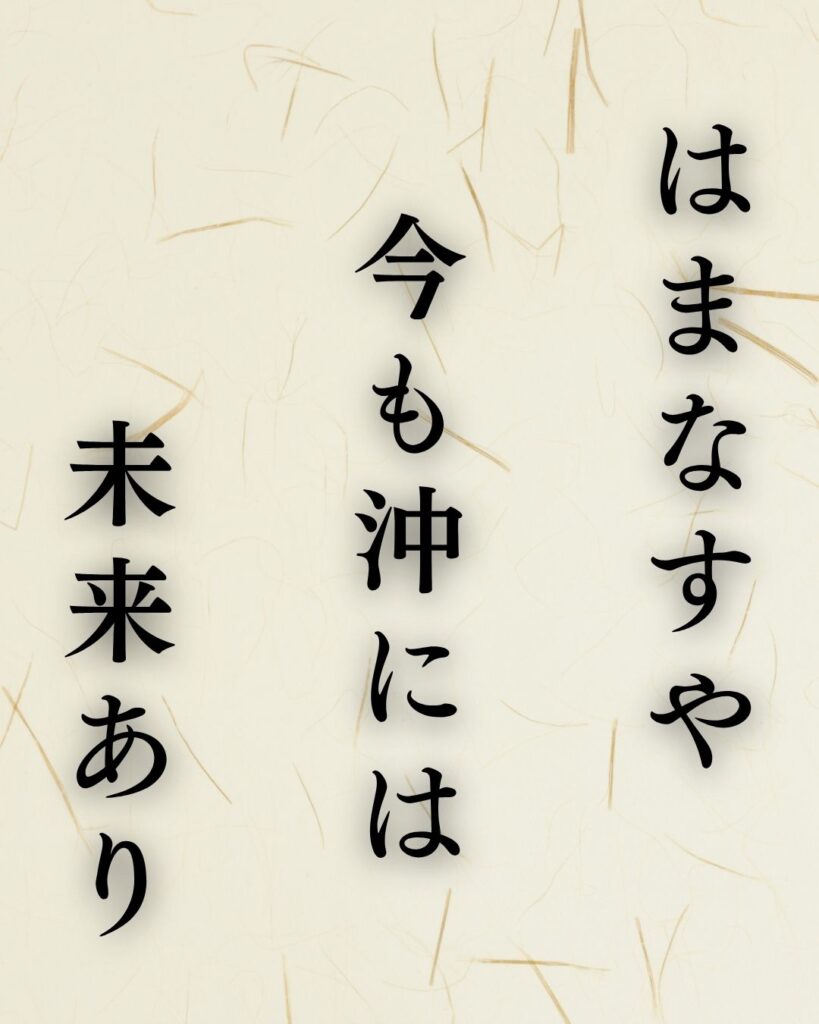 はまなすや
今も沖には
未来あり